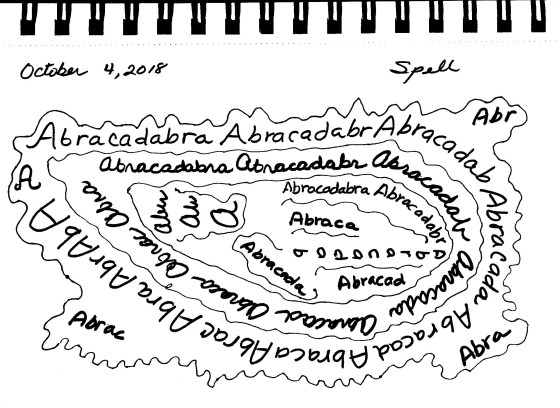 October 4, 2018
Spell
Abr
Abracadabra Abracadabr Abracadab Abracada Abracad Abraca Abrac Abra Abr Ab A
A
Abracadabra Abracadabr Abracadab Abracada Abracad Abraca Abrac Abra
Abr
Ab
A
Abracadabra Abracadabr
Abraca
Abracada
Abracad
Abrac
Abra